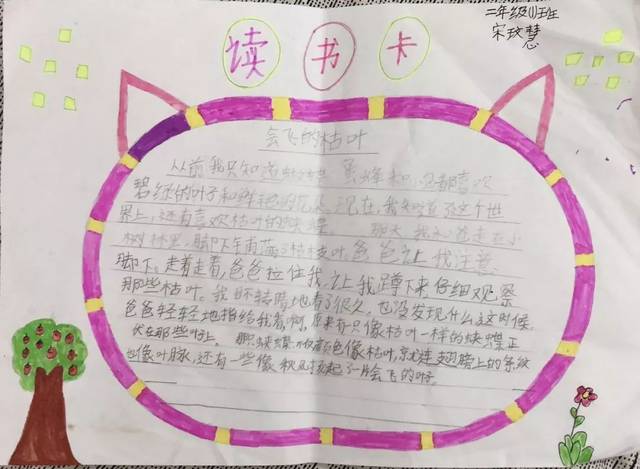 读书卡
二年级(1)班
宋玟慧
会飞的枯叶
从前我只知道 黄蜂和 都喜欢
碧绿的叶子和鲜艳的花朵。现在,我知道了这个世
界上,还有喜欢枯叶的蝴蝶。 那天,我和爸爸走在小
树林里,脚下车雨落了枯枝叶,爸爸让我注意
脚下。走着走着,爸爸拉住我,让我蹲下来仔细观察
那些枯叶。我目不转睛地看了很久,也没发现什么这时候,
爸爸轻轻地指给我看啊,原来有一只像枯叶一样的蝴蝶正
伏在那些叶上。 那只蝴蝶不仅颜色像枯叶,就连翅膀上的条纹
也像叶脉,还有一些像 一片会飞的叶子。